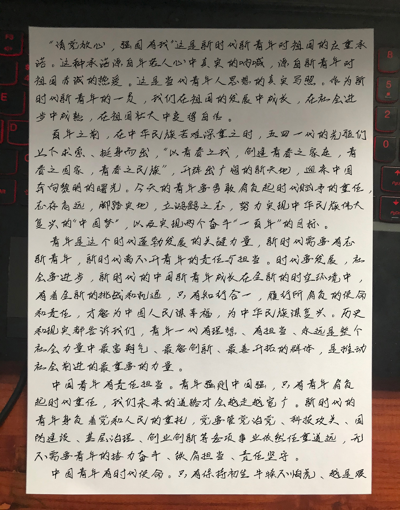 “请党放心，强国有我”这是新时代新青年对祖国的庄重承
诺。这种承诺源自年轻人心中真实的呐喊，源自新青年对
祖国赤诚的热爱。这是当代青年人思想的真实写照。作为新
时代新青年的一员，我们在祖国的发展中成长，在社会进
步中成熟，在祖国壮大中变得自信。
百年之前，在中华民族苦难深重之时，五四一代的先驱们
上下求索、挺身而出，“以青春之我，创造青春之家庭，青
春之国家，青春之民族”，开辟出广阔的新天地，迎来中国
奔向黎明的曙光。今天的青年要勇敢肩负起时代赋予的重任，
志存高远，脚踏实地，立鸿鹄之志，努力实现中华民族伟大
复兴的“中国梦”，以及实现两个奋斗“一百年”的目标。
青年是这个时代蓬勃发展的关键力量，新时代需要有志
新青年，新时代离不开青年的责任与担当。时代要发展，社
会要进步，新时代的中国新青年成长在全新的时空环境中，
有着全新的挑战和机遇，只有知行合一，履行所肩负的使命
和责任，才能为中国人民谋幸福，为中华民族谋复兴。历史
和现实都告诉我们，青年一代有理想、有担当、永远是整个
社会力量中最富朝气、最能创新、最善开拓的群体，是推动
社会前进的最重要的力量。
中国青年有责任担当。青年强则中国强，只有青年肩负
起时代重任，我们未来的道路才会越走越宽广。新时代的
青年身负着党和人民的重托，党要管党治党、科技攻关、国
防建设、基层治理、创业创新等各项事业依然任重道远，无
不需要青年的接力奋斗、依肩担当、责任坚守。
中国青年有时代使命。只有保持初生牛犊不怕虎、越是艰